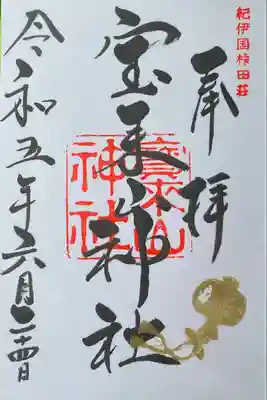 紀伊国桛田荘
奉拝
宝来山神社
寳来山
神社
令和五年六月二十四日